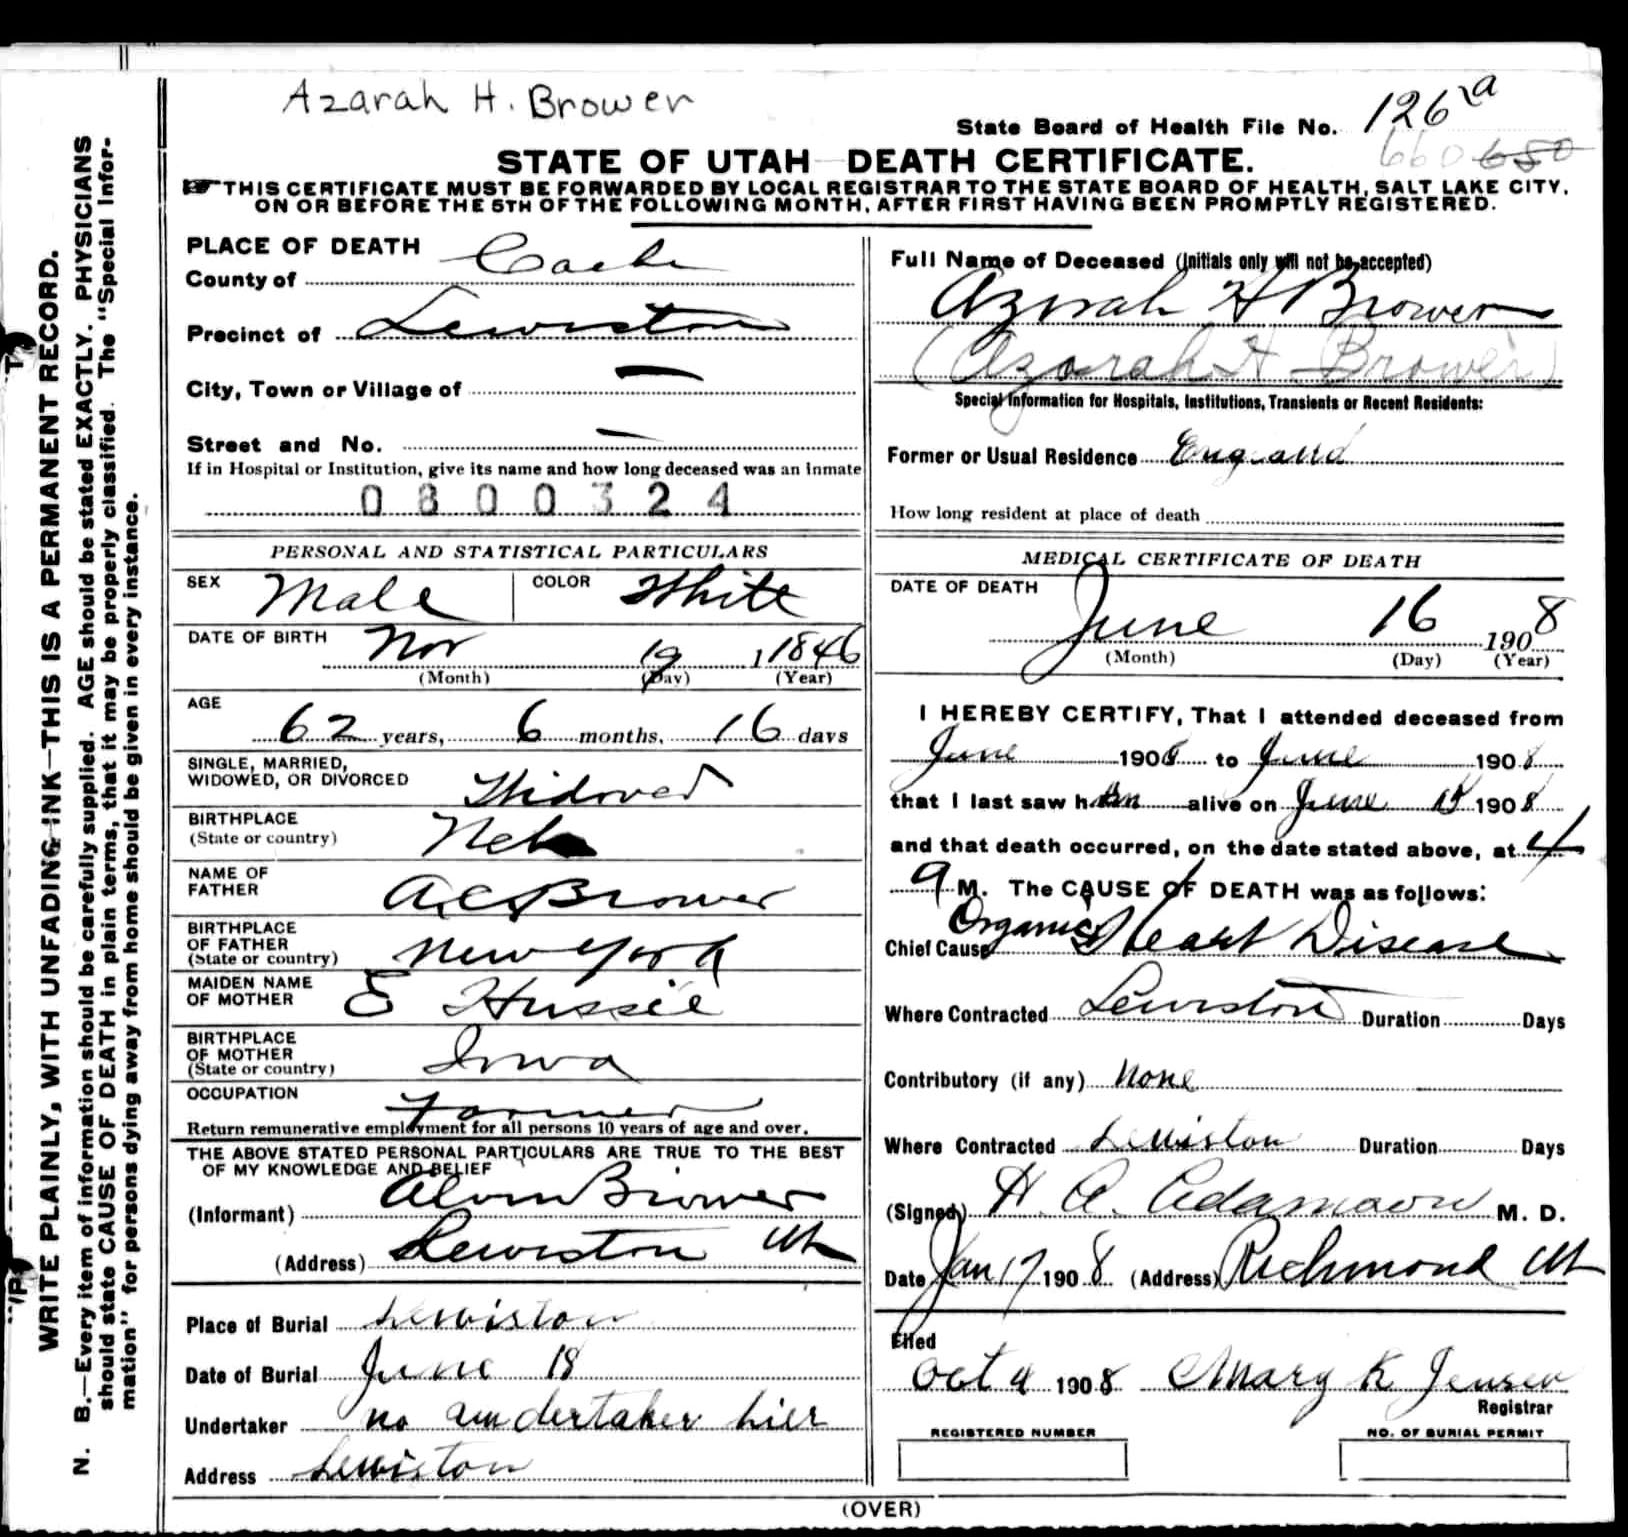 Azarah H. Brower
State Board of Health File No. 126 a
660 680
STATE OF UTAH—DEATH CERTIFICATE.
THIS CERTIFICATE MUST BE FORWARDED BY LOCAL REGISTRAR TO THE STATE BOARD OF HEALTH, SALT LAKE CITY,
ON OR BEFORE THE 5TH OF THE FOLLOWING MONTH, AFTER FIRST HAVING BEEN PROMPTLY REGISTERED.
WRITE PLAINLY, WITH UNFADING INK—THIS IS A PERMANENT RECORD.
N. B.—Every item of information should be carefully supplied. AGE should be stated EXACTLY. PHYSICIANS
should state CAUSE OF DEATH in plain terms, that it may be properly classified. The "Special Infor-
mation" for persons dying away from home should be given in every instance.
PLACE OF DEATH
County of Cache
Precinct of Lewiston
City, Town or Village of —
Street and No. —
If in Hospital or Institution, give its name and how long deceased was an inmate
0800324
PERSONAL AND STATISTICAL PARTICULARS
SEX Male COLOR White
DATE OF BIRTH Nov 19 1 1846
(Month) (Day) (Year)
AGE
62 years, 6 months, 16 days
SINGLE, MARRIED,
WIDOWED, OR DIVORCED Widowed
BIRTHPLACE
(State or country) Neb
NAME OF
FATHER A.C. Brower
BIRTHPLACE
OF FATHER
(State or country) New York
MAIDEN NAME
OF MOTHER E Hussie
BIRTHPLACE
OF MOTHER
(State or country) Iowa
OCCUPATION Farmer
Return remunerative employment for all persons 10 years of age and over.
THE ABOVE STATED PERSONAL PARTICULARS ARE TRUE TO THE BEST
OF MY KNOWLEDGE AND BELIEF
(Informant) Alvin Brower
(Address) Lewiston Ut
Place of Burial Lewiston
Date of Burial June 18
Undertaker no undertaker hier
Address Lewiston
Full Name of Deceased (Initials only will not be accepted)
Azirah H Brower
(Azarah H Brower)
Special Information for Hospitals, Institutions, Transients or Recent Residents:
Former or Usual Residence England
How long resident at place of death
MEDICAL CERTIFICATE OF DEATH
DATE OF DEATH
June 16 1908
(Month) (Day) (Year)
I HEREBY CERTIFY, That I attended deceased from
June 1908 to June 1908
that I last saw him alive on June 15 1908
and that death occurred, on the date stated above, at 4
a M. The CAUSE OF DEATH was as follows:
Chief Cause Organic Heart Disease
Where Contracted Lewiston Duration Days
Contributory (if any) None
Where Contracted Lewiston Duration Days
(Signed) H. A. Adamson M. D.
Date Jan 17 1908 (Address) Richmond Ut
Filed
Oct 4 1908 Mary K Jensen
Registrar
REGISTERED NUMBER
NO. OF BURIAL PERMIT
(OVER)